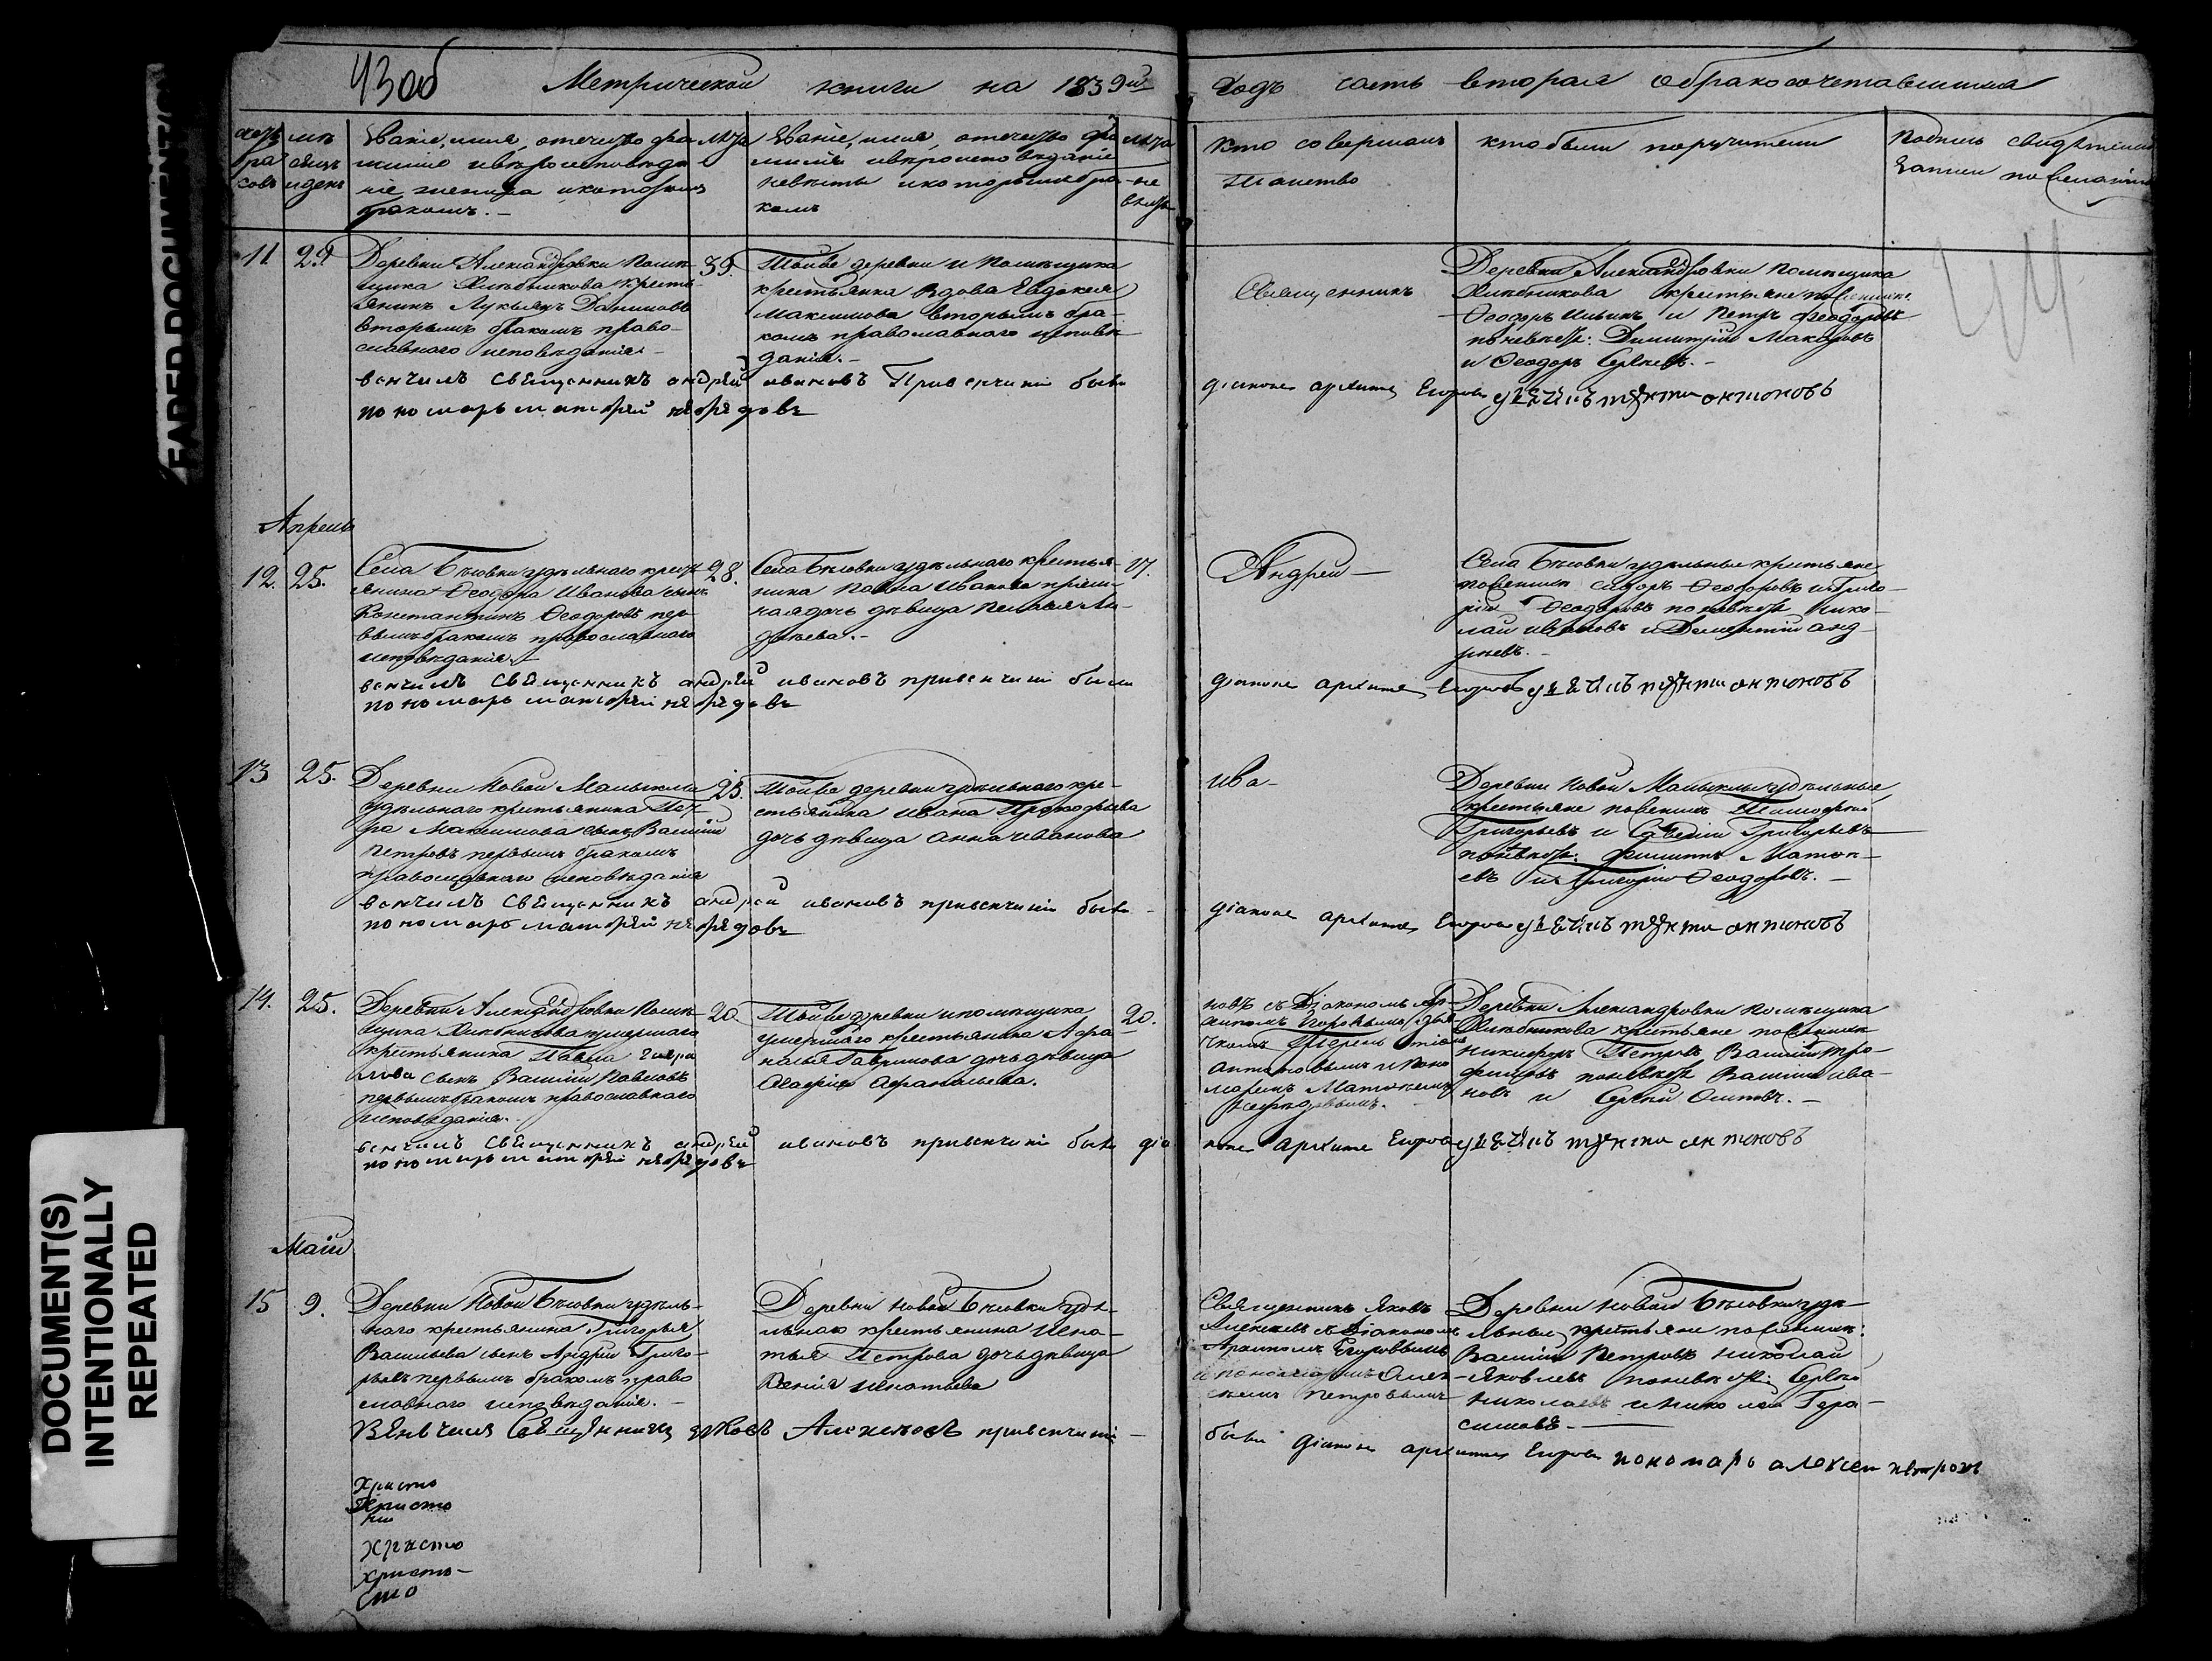 43об
Метрической книги на 1839й
Годъ часть вторая о бракосочетавшихся
Званіе, имя, отечество фа
миліе и вѣроисповѣда
ніе жениха и которымъ
бракомъ. –
лѣта
Званіе, имя, отечество фа
милія и вѣроисповѣданіе
невѣсты и которымъ бра
комъ
лѣта
не
вѣсты
Кто совершалъ
таинство
кто были поручители
Подпись свидѣтелей
записи по желанію
44
11. 29
Деревни Александровки Помѣ-
щика Хлѣбникова кресть-
янинъ Лукьянъ Даниловъ
вторымъ бракомъ право-
славнаго исповѣданія –
39.
Тойже деревни и Помѣщика
крестьянка Вдова Евдокея
Максимова вторымъ бра-
комъ православнаго исповѣ-
данія. –
Священникъ
Деревни Александровки помѣщика
Хлѣбникова крестьяне по женихѣ
Ѳеодоръ Ильинъ и Петръ Ѳеодоровъ
по невѣстѣ: Димитрій Макаровъ
и Ѳеодоръ Сергѣевъ. –
венчилъ свещенникъ андрей ивановъ Привенчиніи были
діаконъ архипъ Егоровъ антоновъ
пономарь матфей
Апрель
12. 25.
Села Бѣсовки удѣльнаго крест-
янина Ѳеодора Иванова сынъ
Константинъ Ѳеодоровъ пер-
вымъ бракомъ православнаго
исповѣданія. –
28.
Села Бѣсовки удѣльнаго крестья-
нина Павла Иванова
дочь дѣвица Пелагея
17.
Андрей –
Села Бѣсовки удѣльные крестьяне
по женихѣ Сидоръ Ѳеодоровъ и Григо-
рій Ѳеодоровъ по невѣстѣ Нико-
лай Ивановъ и Дементій Анд-
рѣевъ. –
венчилъ свещенникъ андрей ивановъ привенчиніи были
діаконъ архипъ Егоровъ антоновъ
пономарь матфей
13 25.
Деревни Новой Малыклы
удѣльнаго крестьянина Пет-
ра Максимова сынъ Василій
Петровъ первымъ бракомъ
православнаго исповѣданія
25.
Тойже деревни удѣльнаго кре-
стьянина Ивана Прокофьева
дочь дѣвица Анна Иванова
Ива-
Деревни Новой Малыклы удѣльные
крестьяне по женихѣ Тимофей
Григорьевъ и Савелій Григорьевъ
по невѣстѣ: Филиппъ Матѳѣ-
евъ и Григорій Ѳеодоровъ. –
венчилъ свещенникъ андрей ивановъ привенчиніи были
діаконъ архипъ Егоровъ антоновъ
пономарь матфей
14. 25.
Деревни Александровки Помѣ-
щика Хлѣбникова умершаго
крестьянина Павла Гаври
лова сынъ Василій Павловъ
первымъ бракомъ православнаго
исповѣданія. –
20
Тойже деревни и помѣщика
умершаго крестьянина Афа-
насья Гаврилова дочь дѣвица
Агафія Афанасьева.
20.
новъ съ Діакономъ Ар-
хипомъ Егоровымъ
Антоновымъ и Поно
маремъ Матвѣемъ
Деревни Александровки помѣщика
Хлѣбникова крестьяне по женихѣ
Никифоръ Петровъ Василій Тро-
фимовъ по невѣстѣ Василій Ива-
новъ и Сергѣй Осиповъ. –
венчилъ свещенникъ андрей ивановъ привенчиніи были діа
конъ архипъ Егоровъ антоновъ
пономарь матфей
Маій
15 9.
Деревни Новой Бѣсовки удѣль-
наго крестьянина Григорья
Васильева сынъ Андрей Григо-
рьевъ первымъ бракомъ право
славнаго исповѣданія. –
Деревни новой Бѣсовки удѣ-
льнаго крестьянина Игна-
тья Петрова дочь дѣвица
Ксенія Игнатьева
Священникъ Яковъ
Алексѣевъ съ Діакономъ
Архипомъ Егоровымъ
и пономаремъ Алек-
сѣемъ Петровымъ
Деревни Новой Бѣсовки удѣ-
льные крестьяне по женихѣ:
Василій Петровъ Николай
Яковлевъ по невѣстѣ: Сергѣй
Николаевъ и Николай Гера-
симовъ –
Венчилъ Священникъ яковъ Алексѣевъ привенчиніи –
были діаконъ архипъ Егоровъ пономарь алексей петровъ
Христо
Христо
Христо
Христо-
сто
DOCUMENT(S)
INTENTIONALLY
REPEATED